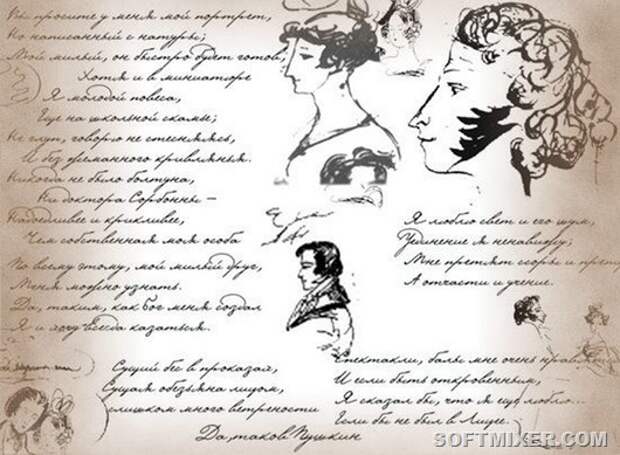 Вы просите у меня мой портрет,
Но написанный с натуры;
Мой милый, он быстро будет готов,
Хотя и в миниатюре
Я молодой повеса,
Еще на школьной скамье;
Не глуп, говорю не стесняясь,
И без жеманного кривлянья.
Никогда не было болтуна,
Ни доктора Сорбонны –
Надоедливее и крикливее,
Чем собственная моя особа
По всему этому, мой милый друг,
Меня можно узнать.
Да, таким, как Бог меня создал
Я и хочу всегда казаться.
Сущий бес в проказах,
Сущая обезьяна лицом,
слишком много ветрености
Да, таков Пушкин
Я люблю свет и его шум,
Уединение я ненавижу;
Мне претят ссоры и
А отчасти и учение.
Спектакли, балы мне очень
И если быть откровенным,
Я сказал бы, что я еще люблю...
Если бы не был в Лицее.
SOFTMIXER.COM